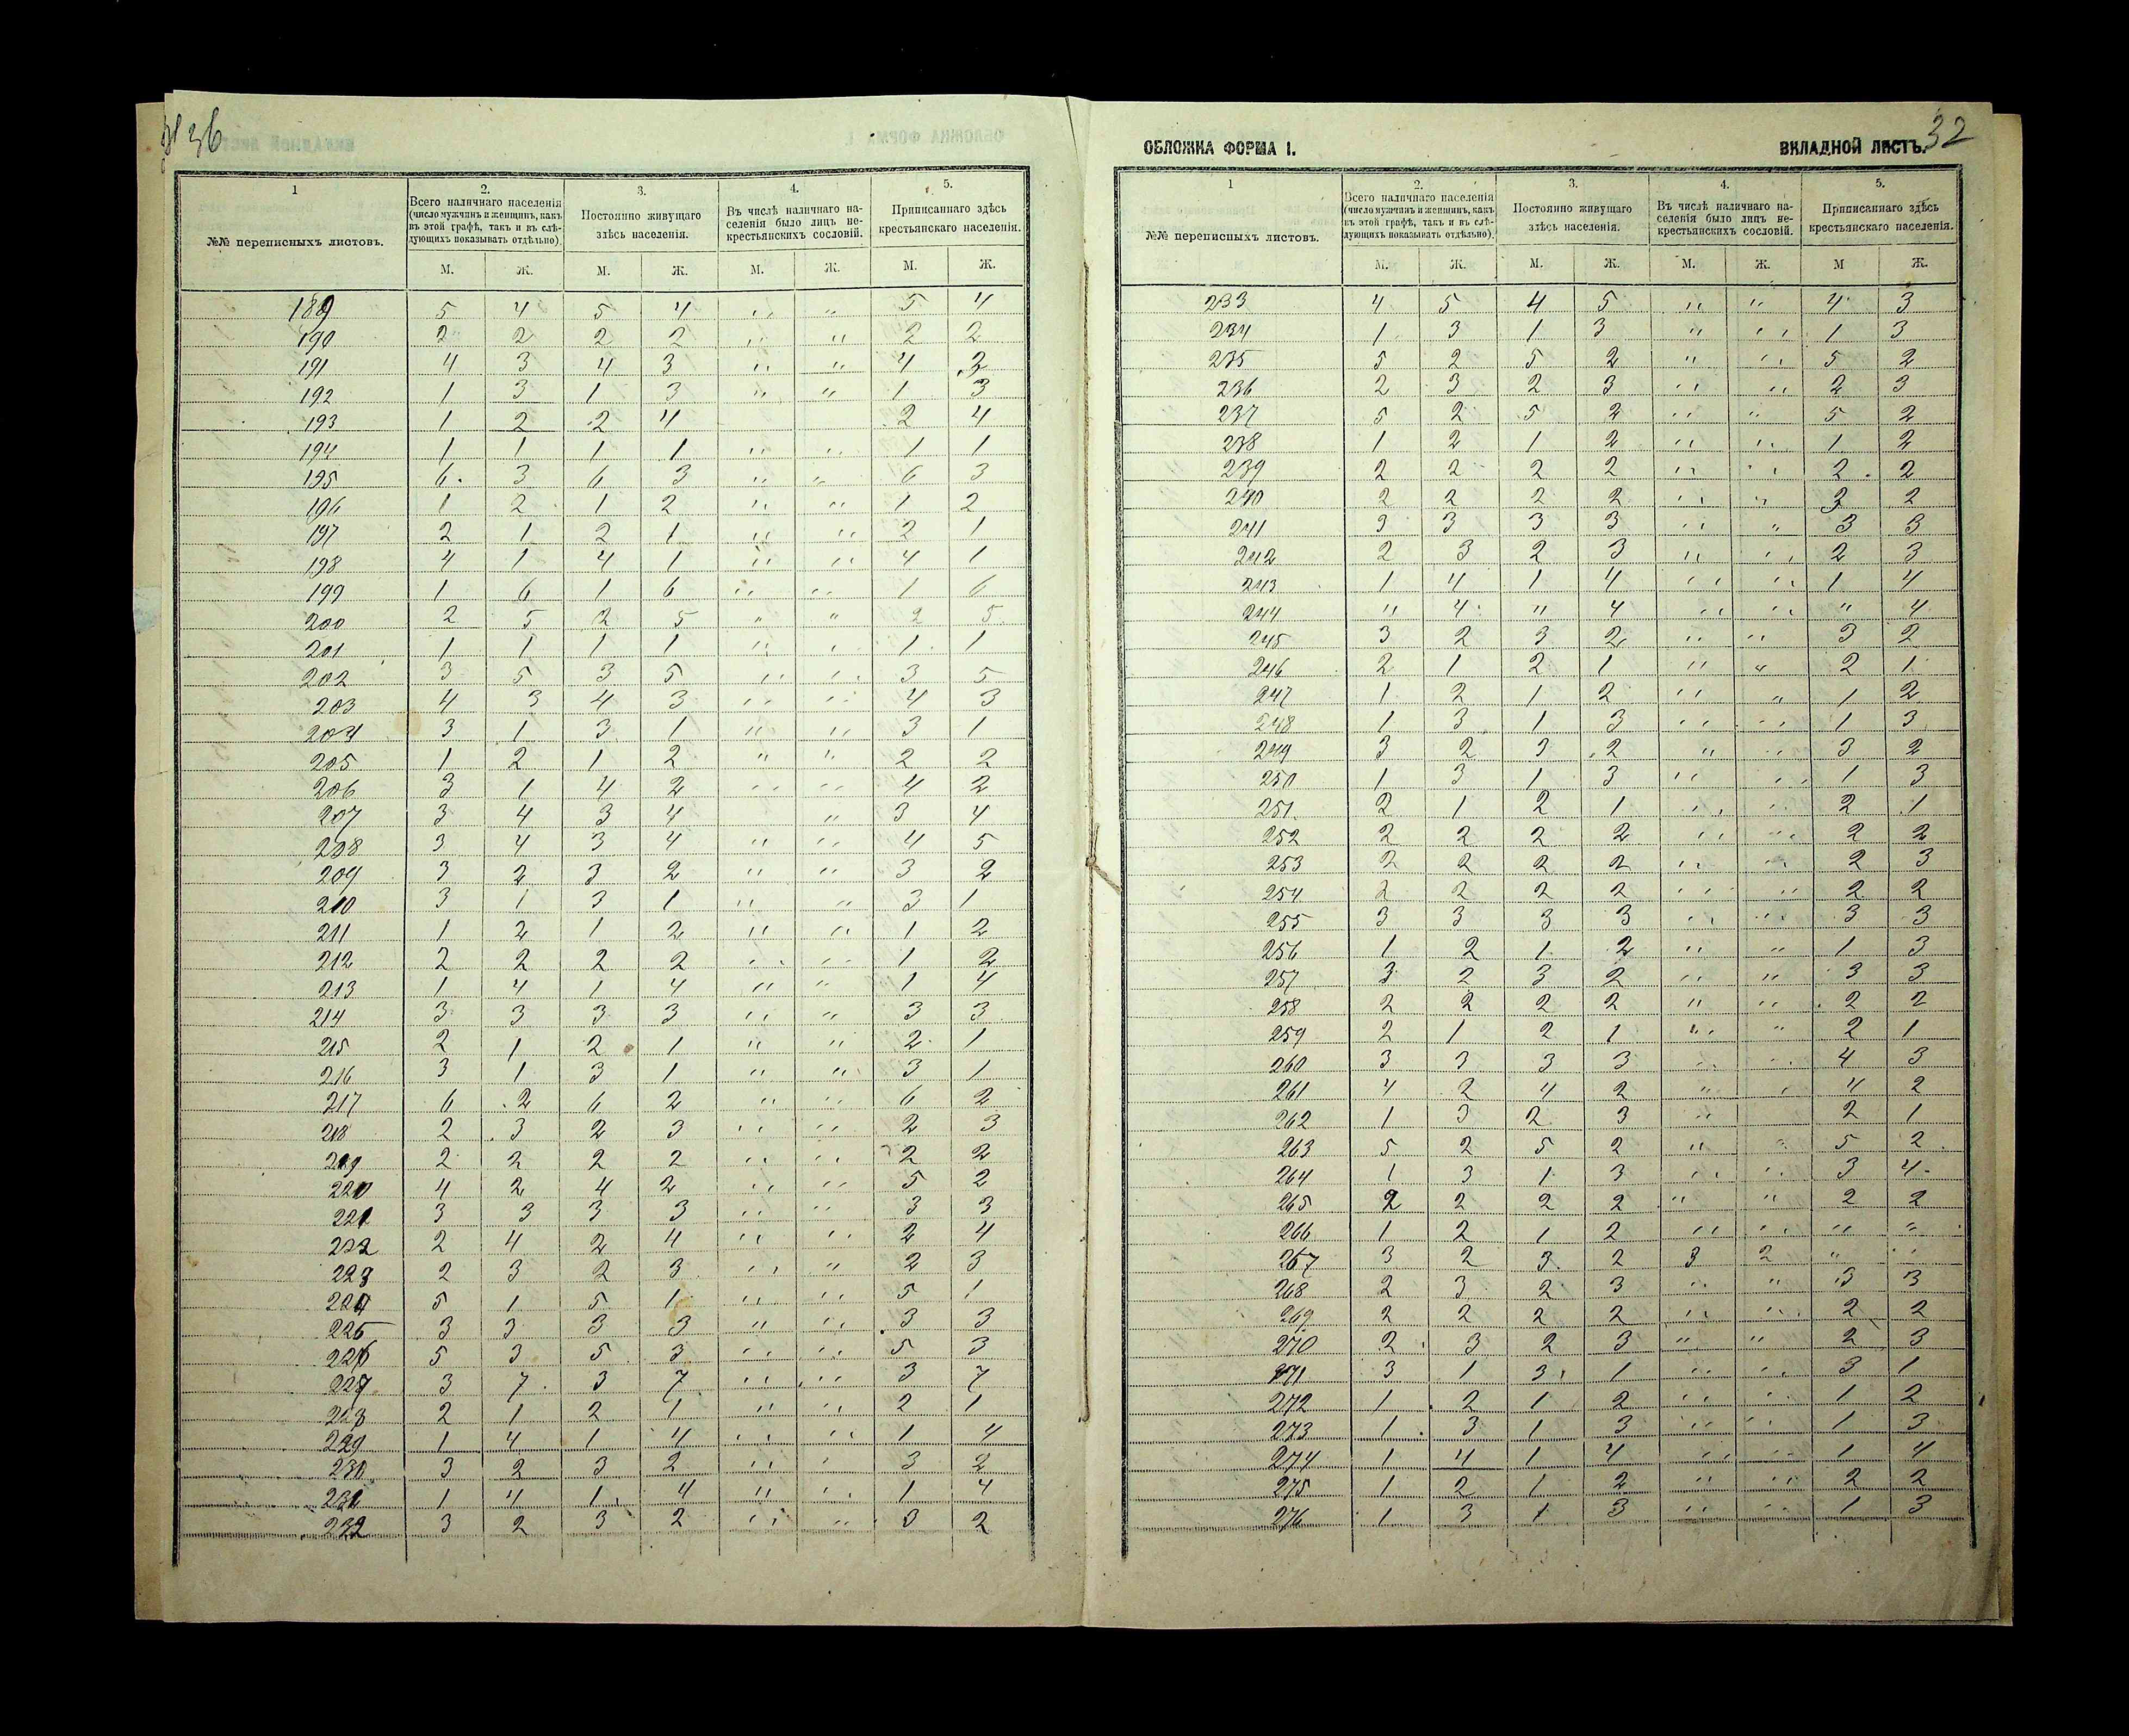 36
1 2. 3. 4. 5.
№№ переписныхъ листовъ. Всего наличнаго населенія (число мужчинъ и женщинъ, какъ въ этой графѣ, такъ и въ слѣдующихъ показывать отдѣльно). Постоянно живущаго здѣсь населенія. Въ числѣ наличнаго населенія было лицъ некрестьянскихъ сословій. Приписаннаго здѣсь крестьянскаго населенія.
М. Ж. М. Ж. М. Ж. М. Ж.
189 5 4 5 4 " " 5 4
190 2 2 2 2 " " 2 2
191 4 3 4 3 " " 4 3
192 1 3 1 3 " " 1 3
193 1 2 2 4 2 4
194 1 1 1 1 " " 1 1
195 6 3 6 3 " " 6 3
196 1 2 1 2 " " 1 2
197 2 1 2 1 " " 2 1
198 4 1 4 1 " " 4 1
199 1 6 1 6 " " 1 6
200 2 5 2 5 " " 2 5
201 1 1 1 1 " " 1 1
202 3 5 3 5 " " 3 5
203 4 3 4 3 " " 4 3
204 3 1 3 1 " " 3 1
205 1 2 1 2 " " 2 2
206 3 1 4 2 " " 4 2
207 3 4 3 4 " 3 4
208 3 4 3 4 " " 4 5
209 3 2 3 2 " " 3 2
210 3 1 3 1 " " 3 1
211 1 2 1 2 " " 1 2
212 2 2 2 2 " " 1 2
213 1 4 1 4 " " 1 4
214 3 3 3 3 " " 3 3
215 2 1 2 1 " " 2 1
216 3 1 3 1 " " 3 1
217 6 2 6 2 " " 6 2
218 2 3 2 3 " " 2 3
219 2 2 2 2 " " 2 2
220 4 2 4 2 " " 5 2
221 3 3 3 3 " " 3 3
222 2 4 2 4 " " 2 4
223 2 3 2 3 " " 2 3
224 5 1 5 1 " " 5 1
225 3 3 3 3 " " 3 3
226 5 3 5 3 " " 5 3
227 3 7 3 7 " " 3 7
228 2 1 2 1 " " 2 1
229 1 4 1 4 " " 1 4
230 3 2 3 2 " " 3 2
231 1 4 1 4 " " 1 4
232 3 2 3 2 " " 3 2
32
ОБЛОЖКА ФОРМА I. ВКЛАДНОЙ ЛИСТЪ.
1 2. 3. 4. 5.
№№ переписныхъ листовъ. Всего наличнаго населенія (число мужчинъ и женщинъ, какъ въ этой графѣ, такъ и въ слѣдующихъ показывать отдѣльно). Постоянно живущаго здѣсь населенія. Въ числѣ наличнаго населенія было лицъ некрестьянскихъ сословій. Приписаннаго здѣсь крестьянскаго населенія.
М. Ж. М. Ж. М. Ж. М Ж.
233 4 5 4 5 " " 4 3
234 1 3 1 3 " " 1 3
235 5 2 5 2 " " 5 2
236 2 3 2 3 " " 2 3
237 5 2 5 2 " " 5 2
238 1 2 1 2 " " 1 2
239 2 2 2 2 " " 2 2
240 2 2 2 2 " " 3 2
241 3 3 3 3 " " 3 3
242 2 3 2 3 " " 2 3
243 1 4 1 4 " " 1 4
244 " 4 " 4 " " " 4
245 3 2 3 2 " " 3 2
246 2 1 2 1 " " 2 1
247 1 2 1 2 " " 1 2
248 1 3 1 3 " " 1 3
249 3 2 3 2 " " 3 2
250 1 3 1 3 " " 1 3
251 2 1 2 1 " " 2 1
252 2 2 2 2 " " 2 2
253 2 2 2 2 " " 2 3
254 2 2 2 2 " " 2 2
255 3 3 3 3 " " 3 3
256 1 2 1 2 " " 1 3
257 3 2 3 2 " " 3 3
258 2 2 2 2 " " 2 2
259 2 1 2 1 " " 2 1
260 3 3 3 3 " " 4 3
261 4 2 4 2 " " 4 2
262 1 3 2 3 " 2 1
263 5 2 5 2 " " 5 2
264 1 3 1 3 " " 3 4
265 2 2 2 2 " " 2 2
266 1 2 1 2 " " " "
267 3 2 3 2 3 2 " "
268 2 3 2 3 " " 3 3
269 2 2 2 2 " " 2 2
270 2 3 2 3 " " 2 3
271 3 1 3 1 " " 3 1
272 1 2 1 2 " " 1 2
273 1 3 1 3 " " 1 3
274 1 4 1 4 " " 1 4
275 1 2 1 2 " " 2 2
276 1 3 1 3 " " 1 3